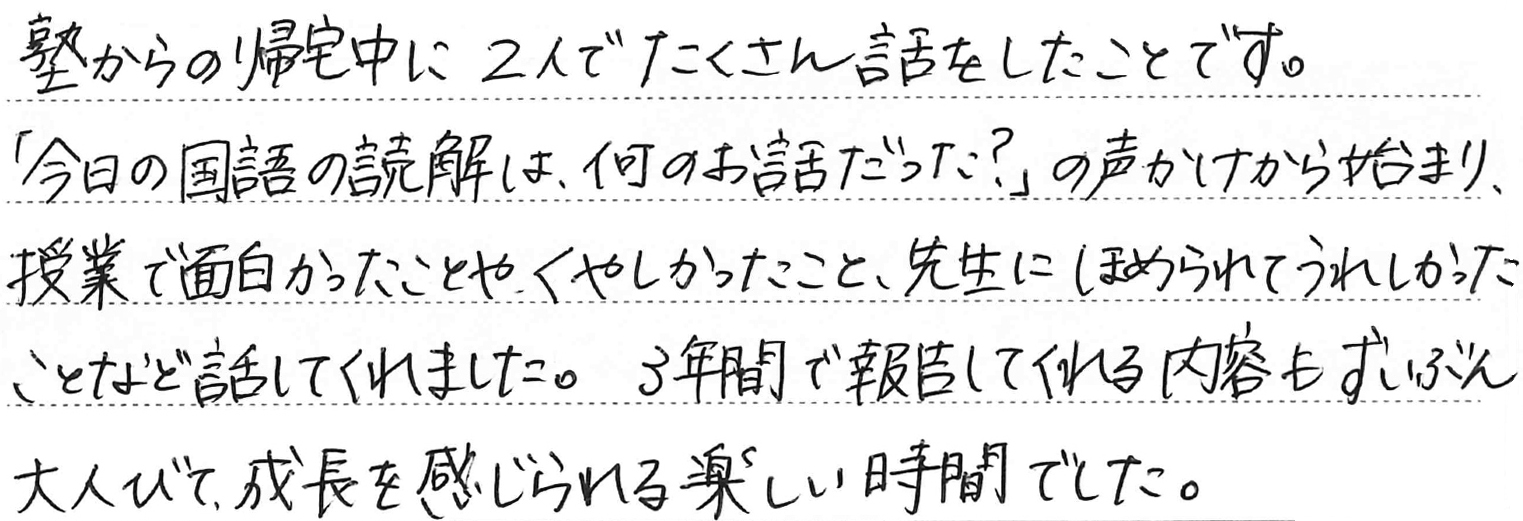 塾からの帰宅中に2人でたくさん話をしたことです。
「今日の国語の読解は、何のお話だった?」の声かけから始まり、
授業で面白かったことや、くやしかったこと、先生にほめられてうれしかった
ことなど話してくれました。 3年間で報告してくれる内容もずいぶん
大人びて、成長を感じられる楽しい時間でした。